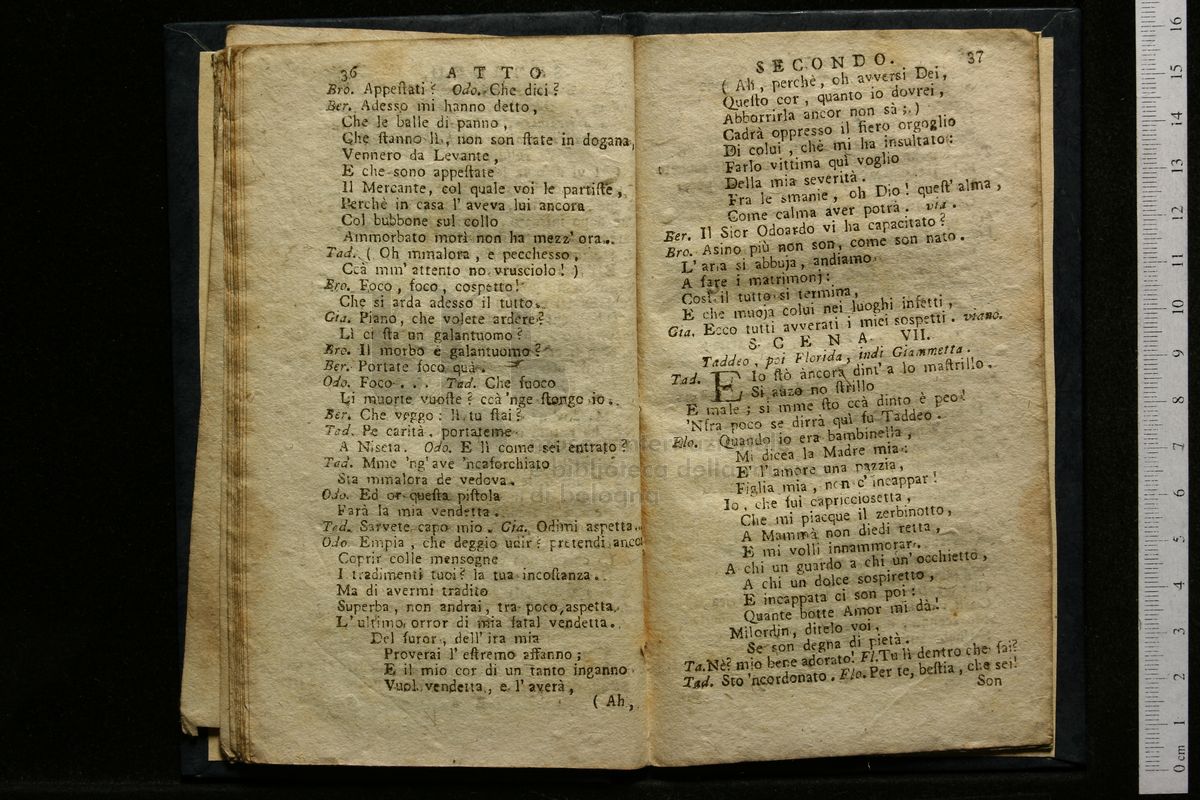 36 ATTO
Bro. Appeſtati? Odo. Che dici?
Ber. Adesso mi hanno detto,
Che le balle di panno,
Che ſtanno lì, non son ſtate in dogana,
Vennero da Levante,
E che sono appeſtate
Il Mercante, col quale voi le partiſte,
Perchè in casa l' aveva lui ancora
Col bubbone sul collo
Ammorbato morì non ha mezz' ora.
Tad. ( Oh mmalora, e pecchesso,
Ccà mm' attento no vrusciolo! )
Bro. Foco, foco, cospetto!
Che si arda adesso il tutto.
Gia. Piano, che volete ardere?
Lì ci ſta un galantuomo?
Bro. Il morbo è galantuomo?
Ber. Portate foco quà.
Odo. Foco... Tad. Che fuoco
Li muorte vuoſte? ccà 'nge ſtongo io.
Ber. Che veggo: lì tu ſtai?
Tad. Pe carità, portateme
A Niseta. Odo. E lì come sei entrato?
Tad. Mme 'ng' ave 'ncaforchiato
Sta mmalora de vedova.
Odo. Ed or queſta piſtola
Farà la mia vendetta.
Tad. Sarvete capo mio. Gia. Odimi aspetta..
Odo. Empia, che deggio udir? pretendi anco
Coprir colle mensogne
I tradimenti tuoi? la tua incoſtanza.
Ma di avermi tradito
Superba, non andrai, tra poco aspetta
L' ultimo orror di mia fatal vendetta.
Del furor, dell' ira mia
Proverai l' eſtremo affanno;
E il mio cor di un tanto inganno
Vuol vendetta, e l' averà,
( Ah,
SECONDO. 37
( Ah, perchè, oh avversi Dei,
Queſto cor, quanto io dovrei,
Abborrirla ancor non sà;)
Cadrà oppresso il fiero orgoglio
Di colui, chè mi ha insultato:
Farlo vittima quì voglio
Della mia severità.
Fra le smanie, oh Dio! queſt' alma,
Come calma aver potrà. via.
Ber. Il Sior Odoardo vi ha capacitato?
Bro. Asino più non son, come son nato.
L' aria si abbuja, andiamo
A fare i matrimonj:
Così il tutto si termina,
E che muoja colui nei luoghi infetti,
Gia. Ecco tutti avverati i miei sospetti. viano.
SCENA VII.
Taddeo, poi Florida, indi Giammetta.
Tad. E Io ſtò ancora dint' a lo maſtrillo.
Si auzo no ſtrillo
E male; si mme ſto ccà dinto è peo!
'Nfra poco se dirrà quì fu Taddeo.
Flo. Quando io era bambinella,
Mi dicea la Madre mia:
E' l' amore una pazzia,
Figlia mia, non c' incappar!
Io, che fui capricciosetta,
Che mi piacque il zerbinotto,
A Mammà non diedi retta,
E mi volli innammorar.
A chi un guardo a chi un' occhietto,
A chi un dolce sospiretto,
E incappata ci son poi:
Quante botte Amor mi dà.
Milordin, ditelo voi,
Se son degna di pietà.
Ta. Nè? mio bene adorato! Fl. Tu lì dentro che fai?
Tad. Sto 'ncordonato. Flo. Per te, beſtia, che sei!
Son